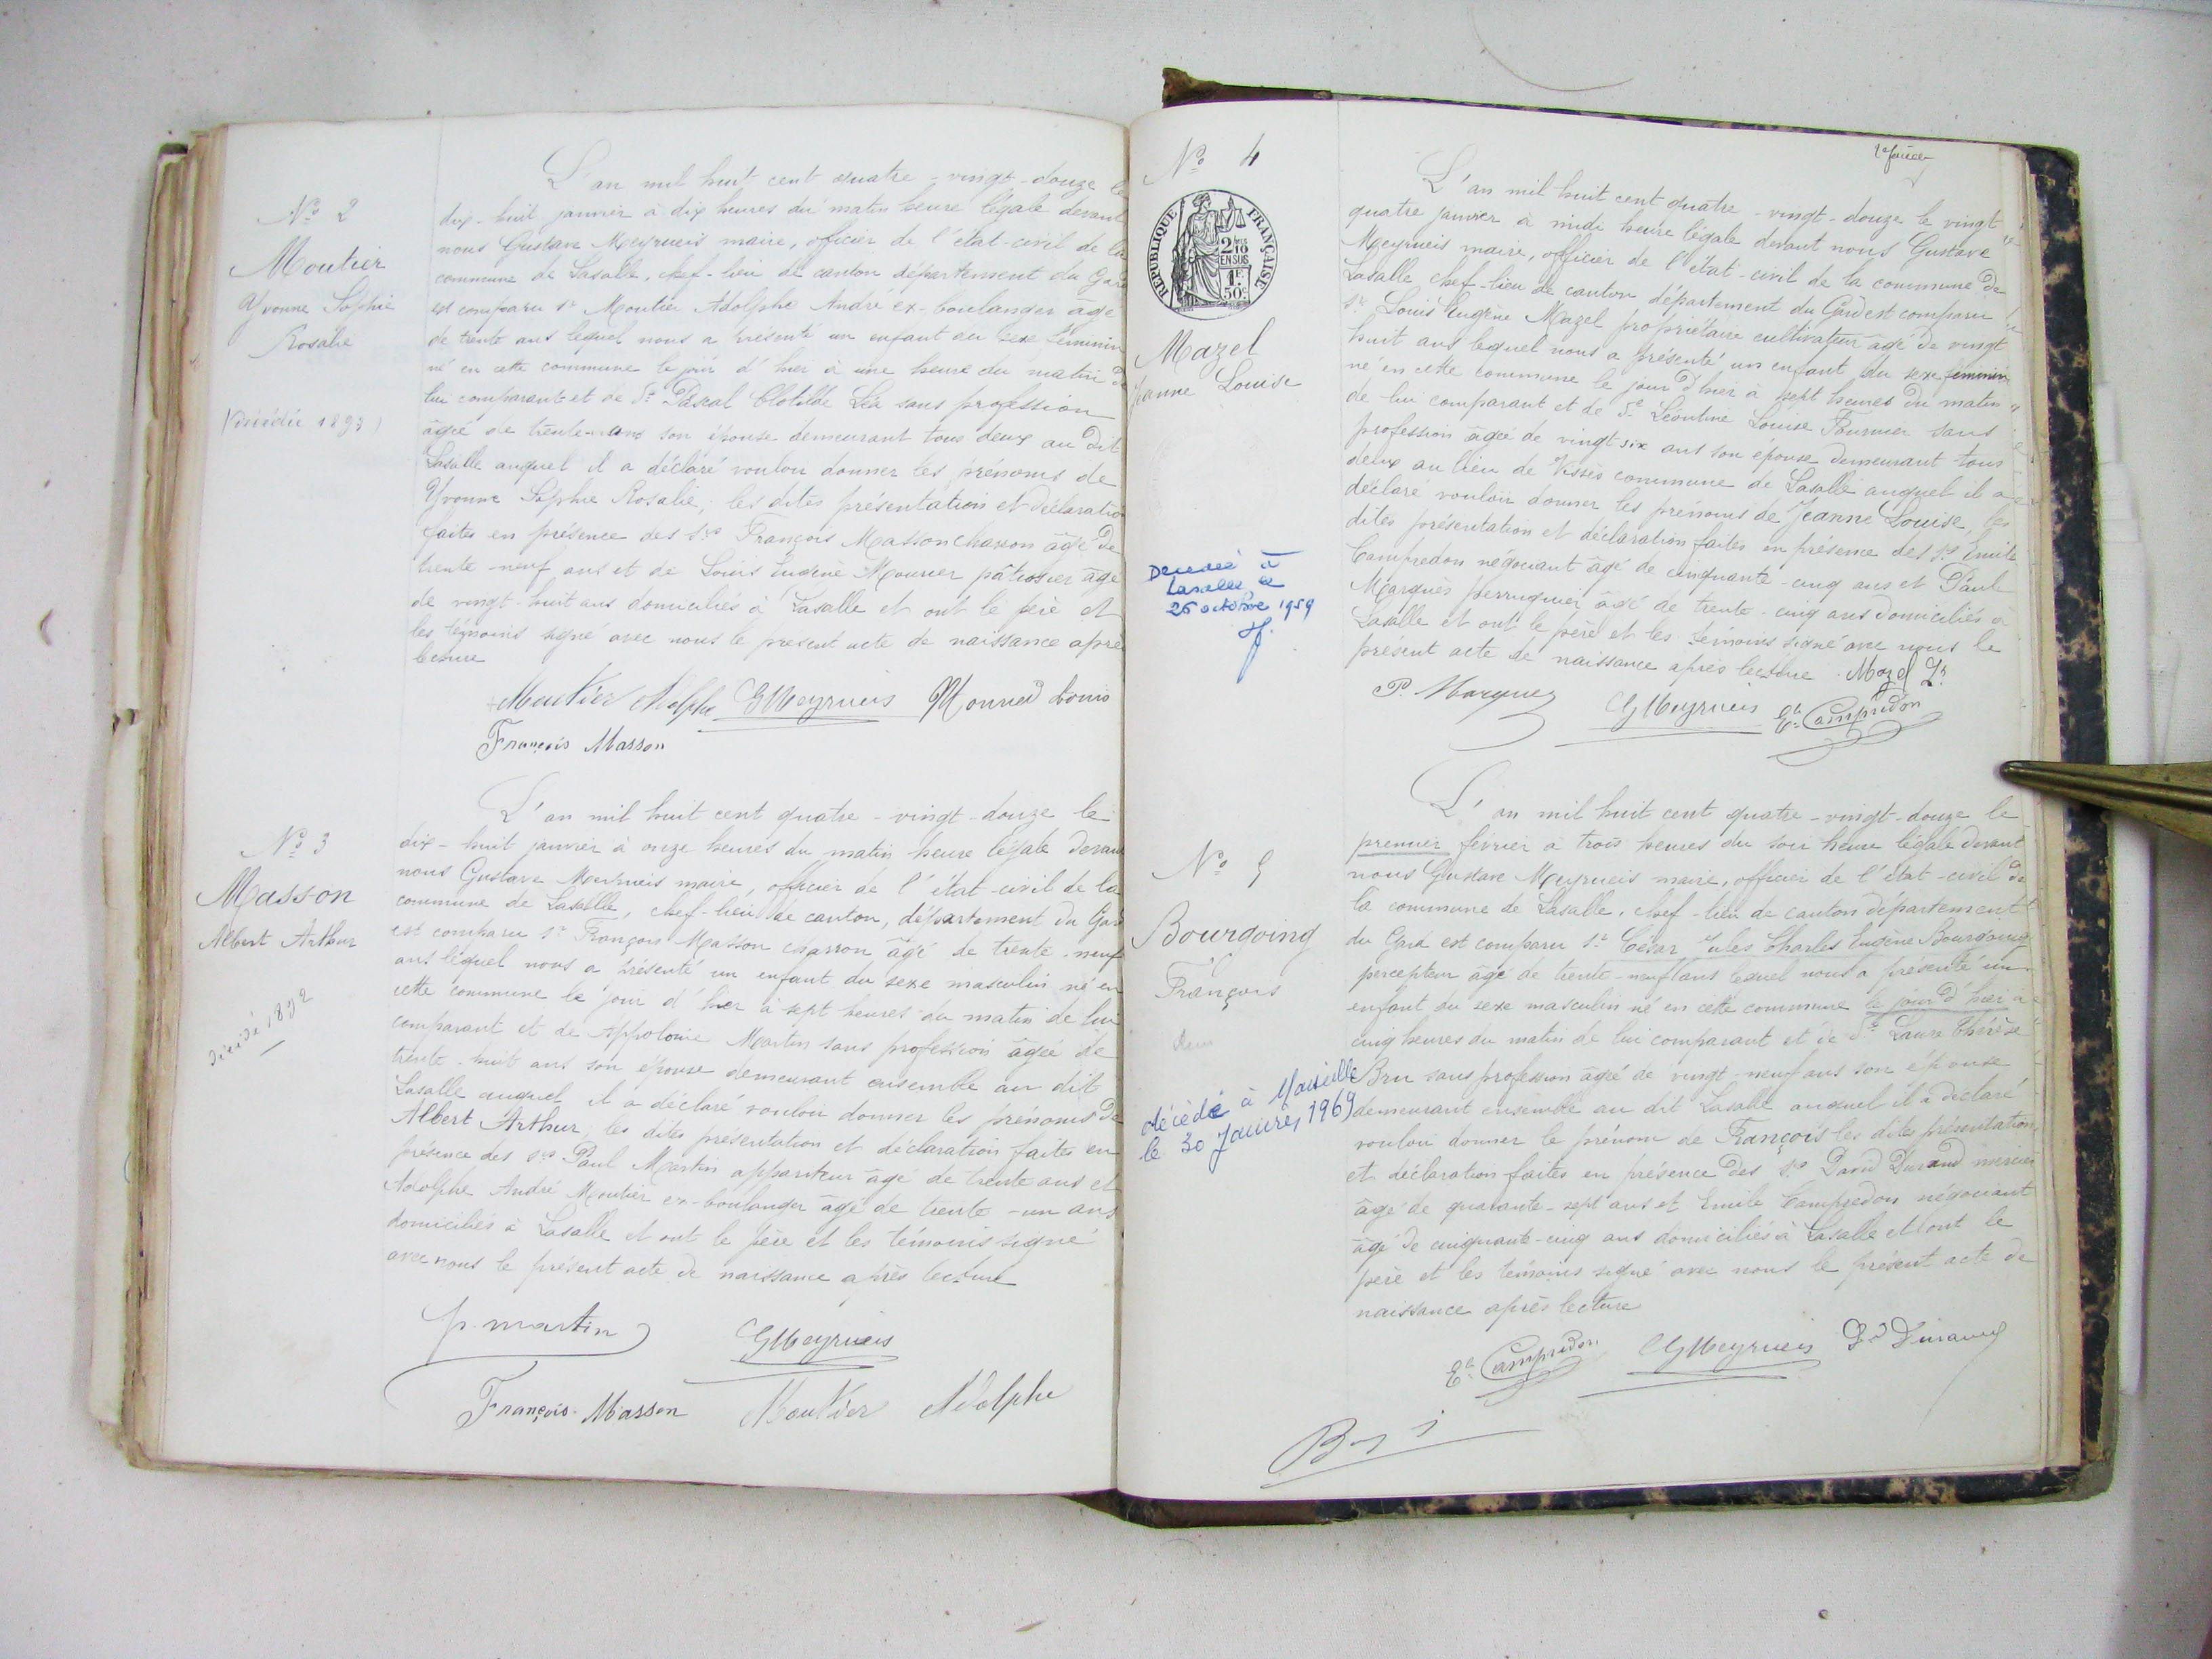 L'an mil huit cent quatre-vingt-douze le
dix-huit janvier à dix heures du matin heure légale devant
nous Gustave Meyrueis maire, officier de l'état-civil de la
commune de Lasalle, chef-lieu de canton département du Gard
est comparu sr Moutier Adolphe André ex-boulanger âgé
de trente ans lequel nous a présenté un enfant du sexe féminin
né en cette commune le jour d'hier à une heure du matin de
lui comparant et de De Pascal Clotilde Léa sans profession
âgée de trente ans son épouse demeurant tous deux au dit
Lasalle auquel il a déclaré vouloir donner les prénoms de
Yvonne Sophie Rosalie, les dites présentation et déclaration
faites en présence des srs François Masson charron âgé de
trente-neuf ans et de Louis Eugène Mourier pâtissier âgé
de vingt-huit ans domiciliés à Lasalle et ont le père et
les témoins signé avec nous le présent acte de naissance après
lecture
No 2
Moutier
Yvonne Sophie
Rosalie
(décédée 1893)
Moutier Adolphe GMeyrueis Louis
François Masson
L'an mil huit cent quatre-vingt-douze le
dix-huit janvier à onze heures du matin heure légale devant
nous Gustave Meyrueis maire, officier de l'état-civil de la
commune de Lasalle, chef-lieu de canton, département du Gard
est comparu sr François Masson charron âgé de trente-neuf
ans lequel nous a présenté un enfant du sexe masculin né en
cette commune le jour d'hier à sept heures du matin de lui
comparant et de Appolonie Martin sans profession âgée de
trente-huit ans son épouse demeurant ensemble au dit
Lasalle auquel il a déclaré vouloir donner les prénoms de
Albert Arthur, les dites présentation et déclaration faites en
présence des srs Paul Martin appariteur âgé de trente ans et
Adolphe André Moutier ex-boulanger âgé de trente-un ans
domiciliés à Lasalle et ont le père et les témoins signé
avec nous le présent acte de naissance après lecture
No 3
Masson
Albert Arthur
Décédé 1892
p. martin GMeyrueis
François Masson Moutier Adolphe
No 4
RÉPUBLIQUE FRANÇAISE
2/10
EN SUS
1F.
50c.
Mazel
Jeanne Louise
Décédée à
Lasalle le
26 octobre 1959
L'an mil huit cent quatre-vingt-douze le vingt
quatre janvier à midi heure légale devant nous Gustave
Meyrueis maire, officier de l'état-civil de la commune de
Lasalle chef-lieu de canton département du Gard est comparu
sr Louis Eugène Mazel propriétaire cultivateur âgé de vingt
huit ans lequel nous a présenté un enfant du sexe féminin
né en cette commune le jour d'hier à sept heures du matin
de lui comparant et de De Léontine Louise Fournier sans
profession âgée de vingt six ans son épouse demeurant tous
deux au lieu de commune de Lasalle auquel il a
déclaré vouloir donner les prénoms de Jeanne Louise, les
dites présentation et déclaration faites en présence des srs Emile
Campredon négociant âgé de cinquante-cinq ans et Paul
Marquès perruquier âgé de trente-cinq ans domiciliés à
Lasalle et ont le père et les témoins signé avec nous le
présent acte de naissance après lecture. Mazel
P. Marquez GMeyrueis Campredon
No 5
Bourgoing
François
décédé à Marseille
le 30 Janvier 1969
L'an mil huit cent quatre-vingt-douze le
premier février à trois heures du soir heure légale devant
nous Gustave Meyrueis maire, officier de l'état-civil de
la commune de Lasalle, chef-lieu de canton département
du Gard est comparu sr César Jules Charles Eugène Bourgoing
percepteur âgé de trente-neuf ans lequel nous a présenté un
enfant du sexe masculin né en cette commune le jour d'hier à
cinq heures du matin de lui comparant et de De Laure Thérèse
Bru sans profession âgée de vingt-neuf ans son épouse
demeurant ensemble au dit Lasalle auquel il a déclaré
vouloir donner le prénom de François les dites présentation
et déclaration faites en présence des srs David Durand mercier
âgé de quarante-sept ans et Emile Campredon négociant
âgé de cinquante-cinq ans domiciliés à Lasalle et ont le
père et les témoins signé avec nous le présent acte de
naissance après lecture
Campredon GMeyrueis Dd Durand